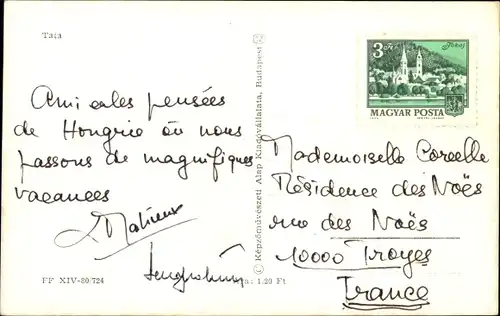 Tata
Amicales pensées
de Hongrie où nous
passons de magnifiques
vacances
FF XIV-80/724
1.20 Ft
© Képzőművészeti Alap Kiadóvállalata, Budapest
3 Ft
Tokaj
MAGYAR POSTA
Mademoiselle Corcelle
Résidence des Noës
rue des Noës
10000 Troyes
France